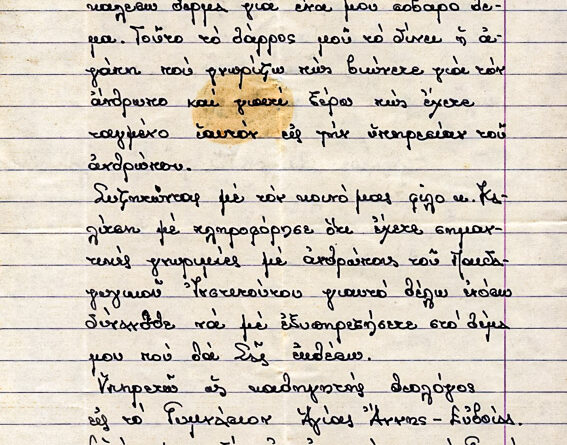 καλέσω θερμά γιά ἕνα μου σοβαρό θέ-
μα. Τοῦτο τό θάρρος μοῦ τό δίνει ἡ ἀ-
γάπη πού γνωρίζω πώς βιώνετε γιά τόν
ἄνθρωπο καί γιατί ξέρω πώς ἔχετε
ταγμένο ἑαυτόν εἰς τήν ὑπηρεσίαν τοῦ
ἀνθρώπου.
Συζητώντας μέ τόν κοινό μας φίλο κ.
μέ πληροφόρησε ὅτι ἔχετε σημαν-
τικές γνωριμίες μέ ἀνθρώπους τοῦ Παιδα-
γωγικοῦ Ἰνστιτούτου γιαυτό θέλω ὅσω
δύνασθε νά μέ ἐξυπηρετήσετε στό θέμα
μου πού θά Σᾶς ἐκθέσω.
Ὑπηρετῶ ὡς καθηγητής θεολόγος
εἰς τό Γυμνάσιον Ἁγίας Ἄννης - Εὐβοίας.